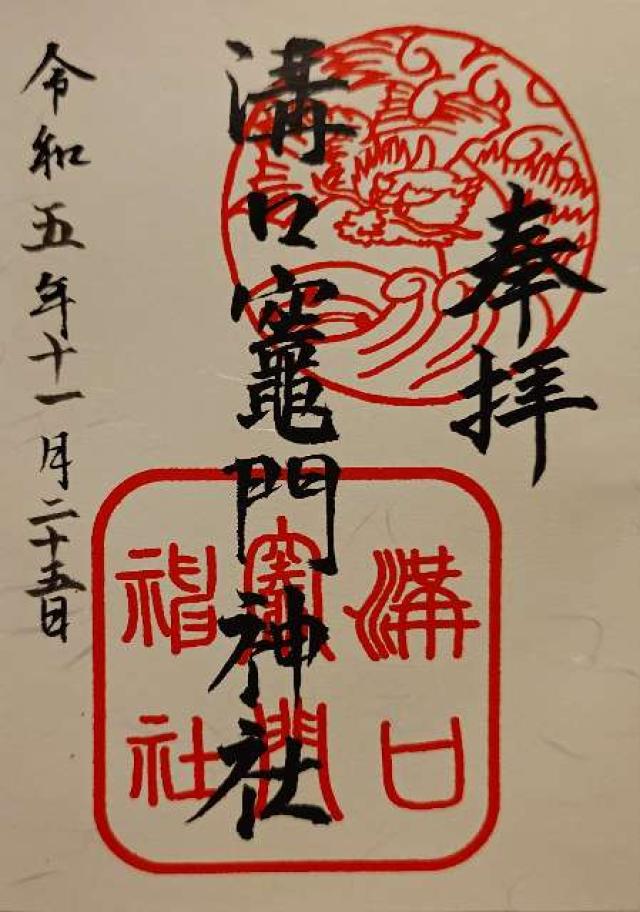 奉拝
溝口竈門神社
令和五年十一月二十五日
溝口
竈門
神社